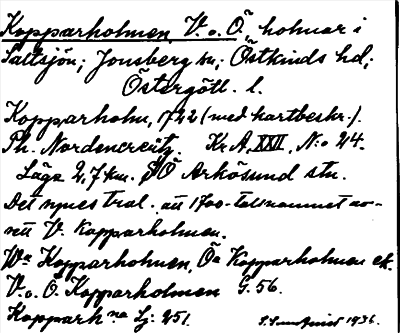 Kopparholmen, V. o. Ö., holmar i
Saltsjön; Jonsberg sn; Östkinds hd;
Östergötl. l.
Kopparholm, 1722 (med kartbeskr.).
Ph. Nordencreitz. Kr. A, XXII, N:o 24.
Läge 2,7 km. SÖ Arkösund stn.
Det synes tral. att 1700-talsnamnet av-
sett V. Kopparholmen.
Wa Kopparholmen, Öa Kopparholmen ek.
V. o. Ö. Kopparholmen G. 56.
Koppark na Lj. 251.
1936.